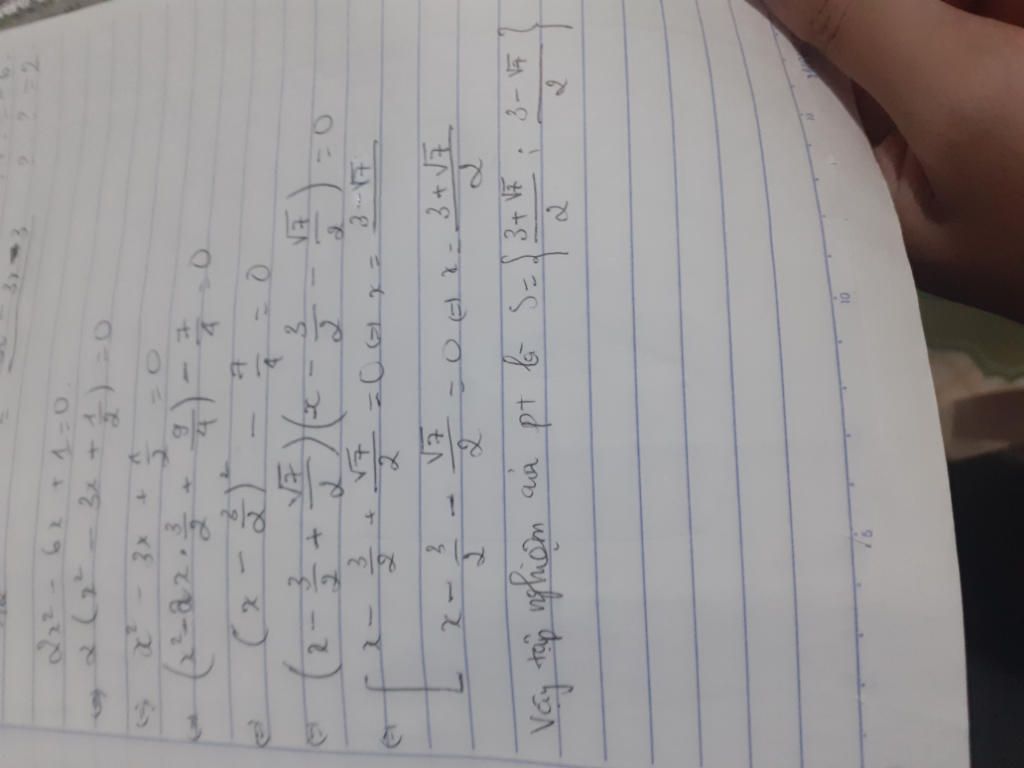 2x² - 6x + 1 = 0
⇔ 2(x² - 3x + 1/2) = 0
⇔ x² - 3x + 1/2 = 0
⇔ (x² - 2x·3/2 + 9/4) - 7/4 = 0
⇔ (x - 3/2)² - 7/4 = 0
⇔ (x - 3/2 + √7/2)(x - 3/2 - √7/2) = 0
⇔ [ x - 3/2 + √7/2 = 0 ⇔ x = 3-√7
x - 3/2 - √7/2 = 0 ⇔ x = 3+√7/2
Vậy tập nghiệm của pt là S = {3+√7/2 ; 3-√7/2}